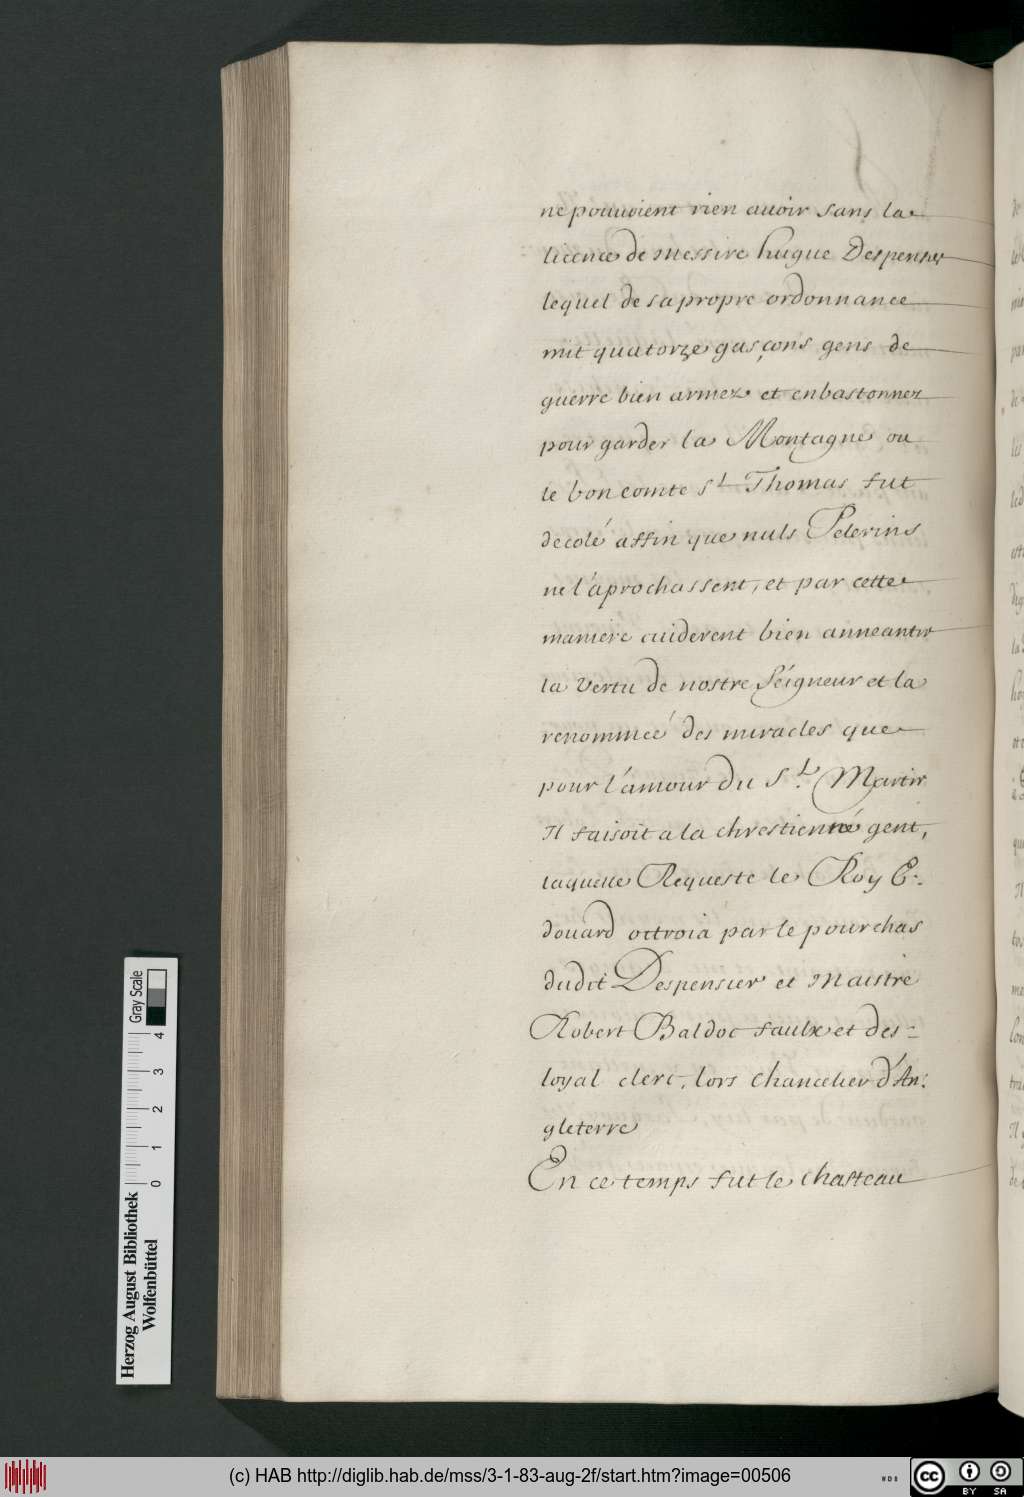 ne pouuoient rien auoir sans la
licence de messire hugue Despenser
lequel de sa propre ordonnance
mit quatorze gasçons gens de
guerre bien armez et enbastonnez
pour garder la Montagne ou
le bon comte St Thomas fut
decolé affin que nuls Pelerins
ne l'aprochassent, et par cette
maniere cuiderent bien anneantir
la vertu de nostre Séigneur et la
renommeé des miracles que
pour l'amour du St. Martir
Il faisoit a la chrestienné gent,
laquelle Requeste le Roy E-
douard octroia par le pourchas
dudit Despensier et maistre
Robert Baldoc faulx et des=
loyal clerc, lors chancelier d'An:
gleterre
En ce temps fut le chasteau
Herzog August Bibliothek
Wolfenbüttel
0 1 2 3 4
Gray Scale
(c) HAB http://diglib.hab.de/mss/3-1-83-aug-2f/start.htm?image=00506
WDB
cc BY SA